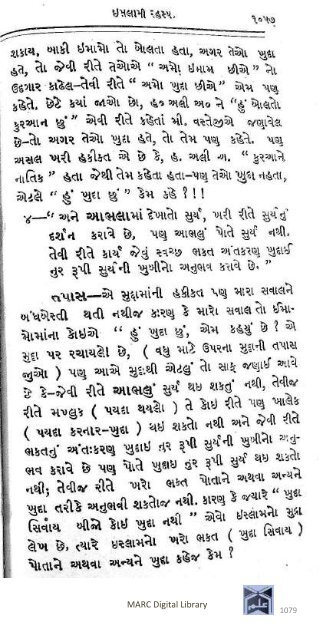 ઇસ્લામી રહસ્ય.
૧૦૫૭
શકાય, બાકી ઇમામો તો બોલતા હતા, અગર તેઓ ખુદા
હતે, તો જેવી રીતે તેઓએ “ અમો ઇમામ છીએ ” નો
ઉદ્દગાર કાઢેલ—તેવી રીતે “ અમો ખુદા છીએ ” એમ પણ
કહેતે. છેટે કયાં જાઓ છો, હ૦ અલી અ૦ ને “હું બોલતો
કુરઆન છું” એવી રીતે કહેતાં મી. વસ્તેજીએ જણાવેલ
છે—તો અગર તેઓ ખુદા હતે, તો તેમ પણ કહેતે. પણ
અસલ ખરી હકીકત એ છે કે, હ. અલી અ. “ કુરઆને
નાતિક ” હતા જેથી તેમ કહેતા હતા—પણ તેઓ ખુદા નહતા,
એટલે “ હું ખુદા છું ” કેમ કહે ? ! ! !
૪—“ અને આભલામાં દેખાતો સુર્ય, ખરી રીતે સુર્યનું
દર્શન કરાવે છે, પણ આભલું પોતે સુર્ય નથી.
તેવી રીતે કાર્ય જેવું સ્વચ્છ ભક્ત અંતઃકરણ ખુદાઇ
નુર રૂપી સુર્યની ખુબીનો અનુભવ કરાવે છે. ”
તપાસ—એ સુદ્દામાંની હકીકત પણ મારા સવાલને
બંધબેસ્તી થતી નથીજ કારણ કે મારો સવાલ તો ઇમા-
મોમાંના કોઇએ “ હું ખુદા છું ”, એમ કહ્યું છે ? એ
મુદ્દા પર રચાયલો છે, ( વધુ માટે ઉપરના સુદ્દાની તપાસ
જુઓ ) પણ આએ સુદ્દાથી એટલું તો સાફ જણાઈ આવે
છે કે—જેવી રીતે આભલું સુર્ય થઇ શકતું નથી, તેવીજ
રીતે મખ્લુક ( પયદા થયલો ) તે કોઈ રીતે પણ ખાલેક
( પયદા કરનાર—ખુદા ) થઇ શકતો નથી અને જેવી રીતે
ભક્તનું અંતઃકરણ ખુદાઇ નુર રૂપી સુર્યની ખુબીનો અનુ-
ભવ કરાવે છે પણ પોતે ખુદાઇ નુર રૂપી સુર્ય થઇ શકતો
નથી; તેવીજ રીતે ખરો ભક્ત પોતાને અથવા અન્યને
ખુદા તરીકે અનુભવી શકતોજ નથી. કારણ કે જ્યારે “ ખુદા
સિવાય બીજો કોઇ ખુદા નથી ” એવો ઇસ્લામનો સુદ્દા
લેખ છે, ત્યારે ઇસ્લામનો ખરો ભક્ત ( ખુદા સિવાય )
પોતાને અથવા અન્યને ખુદા કહેજ કેમ ?
MARC Digital Library
1079